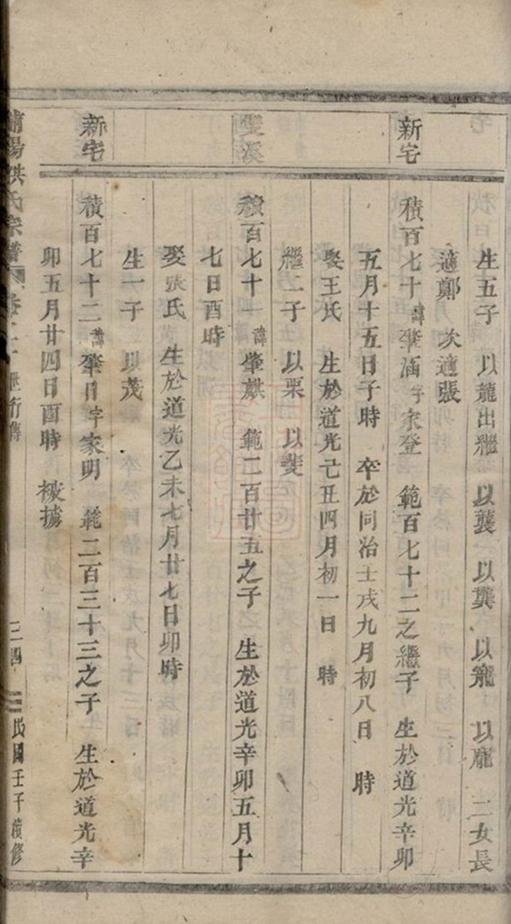 生五子 以龍出繼 以襲 以龔 以寵 以龐 二女長
適鄭 次適張
新宅
積百七十諱肇涵字永登 範百七十二之繼子 生於道光辛卯
五月十五日子時 卒於同治壬戌九月初八日 時
娶王氏 生於道光己丑四月初一日 時
繼二子 以栗 以斐
雙溪
積百七十一諱肇麒 範二百廿五之子 生於道光辛卯五月十
七日酉時
娶張氏 生於道光乙未七月廿七日卯時
生一子 以茂
新宅
積百七十二諱肇日字家明 範二百三十三之子 生於道光辛
卯五月廿四日酉時 被擄
陽洪氏宗譜 卷 行傳 三四 民國壬子續修